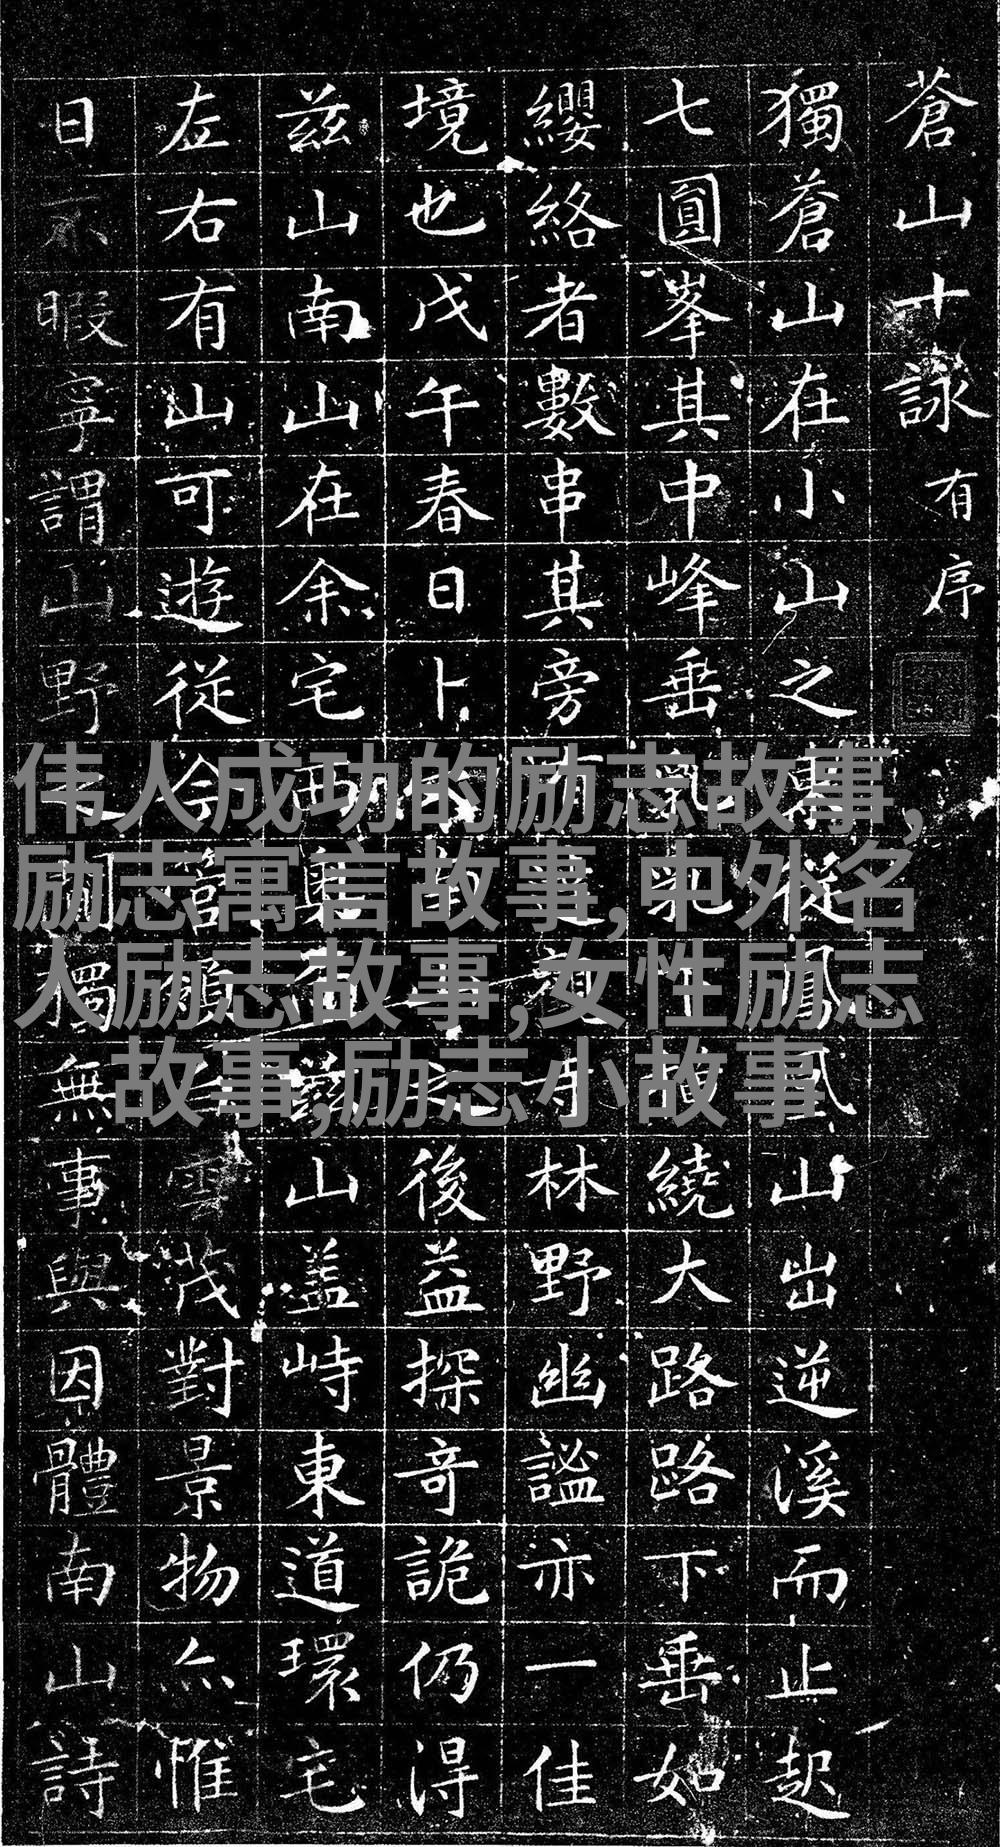 蒼山十詠 有序
獨蒼山在小山之山出逆溪而止起
七圓峯其中峰垂乳繞大路路下垂如
纓絡者數串其旁有寺林野幽謐亦一佳
境也戊午春日卜後益探奇詭仍得
茲山南山在余宅西茲山盖峙東道環宅
左右有山可遊從今雲茂對景物亦惟
日不暇寧謂山野之間獨無事與因體南山詩
伟人成功的励志故事,
励志寓言故事,中外名
人励志故事,女性励志
故事,励志小故事